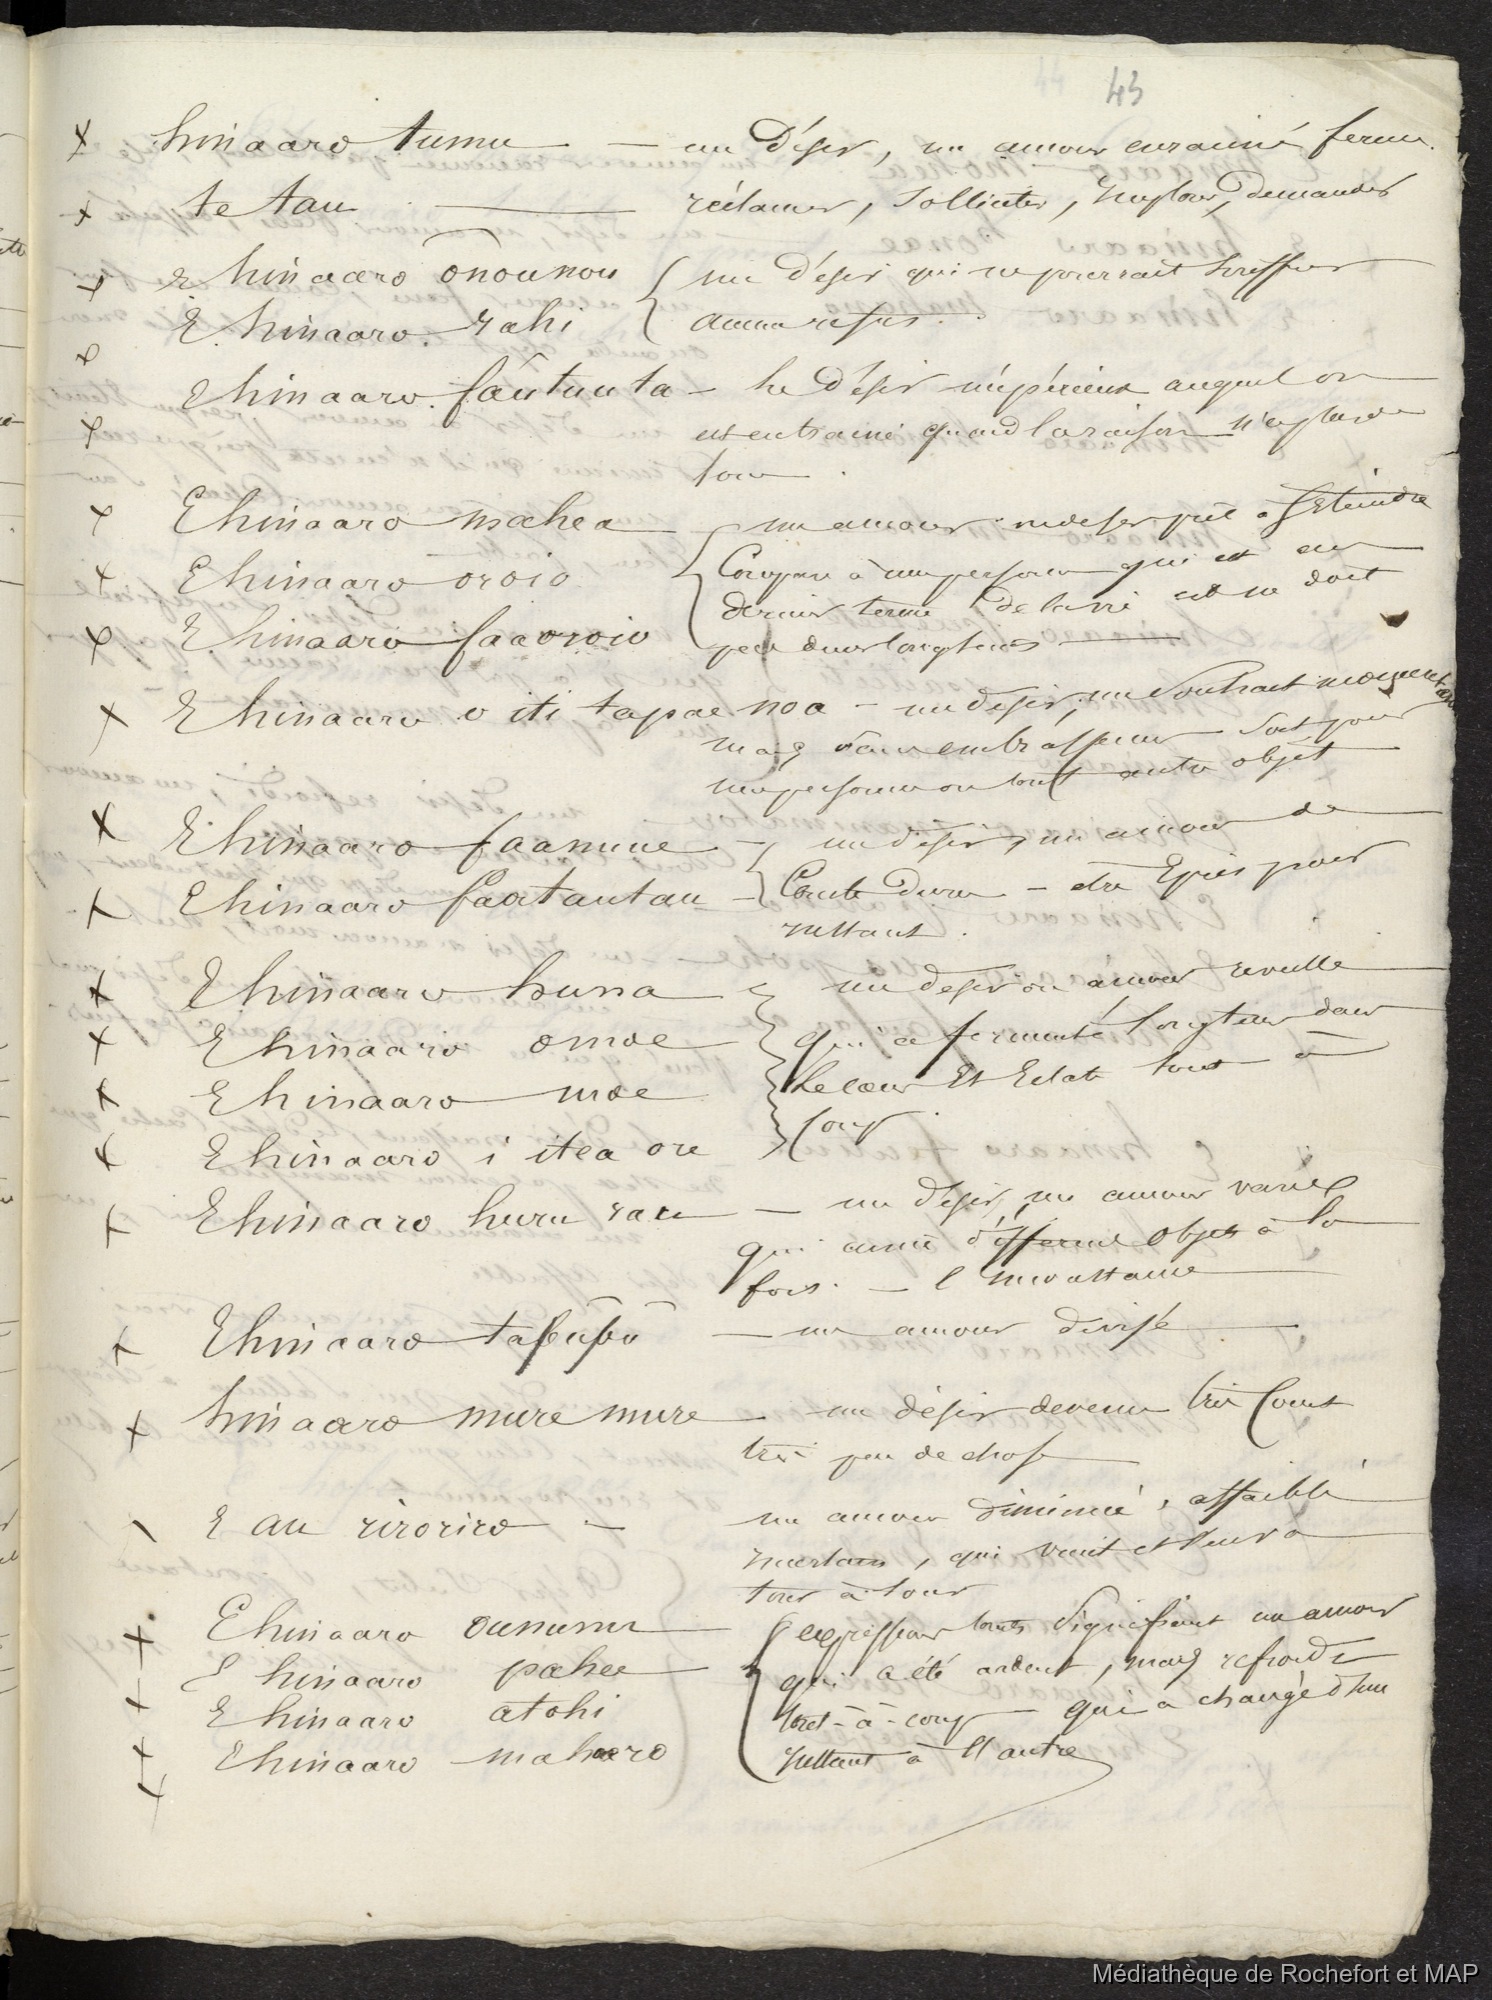 43
hinaaro tumu — un désir, un amour enraciné ferme.
te tau — réclamer, solliciter, implorer, demander
E hinaaro onounou { un désir qui ne pourrait souffrir
E hinaaro rahi aucun refus.
E hinaaro faûtuuta — le désir impérieux auquel on
est entrainé quand la raison n'a plus de
E hinaaro mahea — un amour, un désir prêt à s'éteindre
E hinaaro oroio { Comparé à une personne qui est au
dernier terme de la vie et ne doit
E hinaaro faaoroio pas durer longtemps
E hinaaro o iti tapae noa — un désir, un souhait momentané
mais vain soit pour
une personne ou tout autre objet
E hinaaro faamue — un désir, un amour de
E hinaaro faatautau — { Courte durée — être épris pour
instant.
E hinaaro huna — un désir ou amour
E hinaaro omoe qui a fermenté longtems dans
E hinaaro moe le cœur et éclate tout à
coup.
E hinaaro i itea ore
E hinaaro huru rau — un désir, un amour varié
qui aime différens objets à la
fois. — l'inconstance
E hinaaro tafifi — un amour divisé
hinaaro mure mure — un désir devenu très court
très peu de chose
E au riroriro — un amour diminué, affaibli
incertain, qui vient et meurt
tour à tour
E hinaaro oumumu { expressions toutes signifiant un amour
E hinaaro pahee qui a été ardent, mais refroidi
E hinaaro atohi tout-à-coup — qui a changé d'un
E hinaaro mahoro instant à l'autre
Médiathèque de Rochefort et MAP